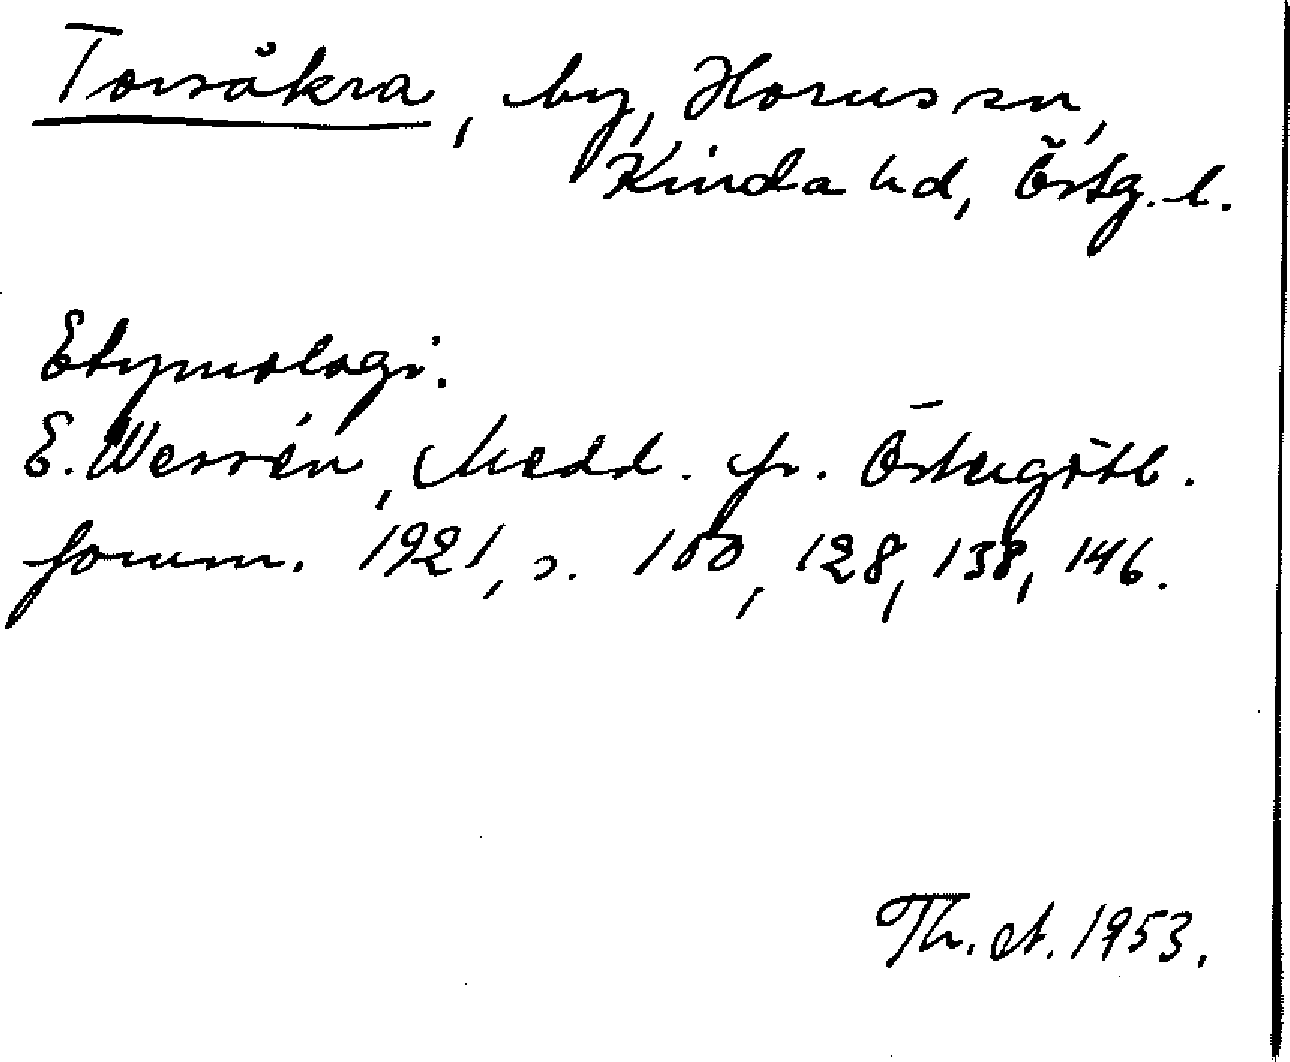 Torsåkra, by, Horns sn,
Kinda hd, Östg. l.
Etymologi.
E. Wessén, Medd. fr. Östergötl.
fornm. 1921, s. 100, 128, 138, 146.
Th. A. 1953.